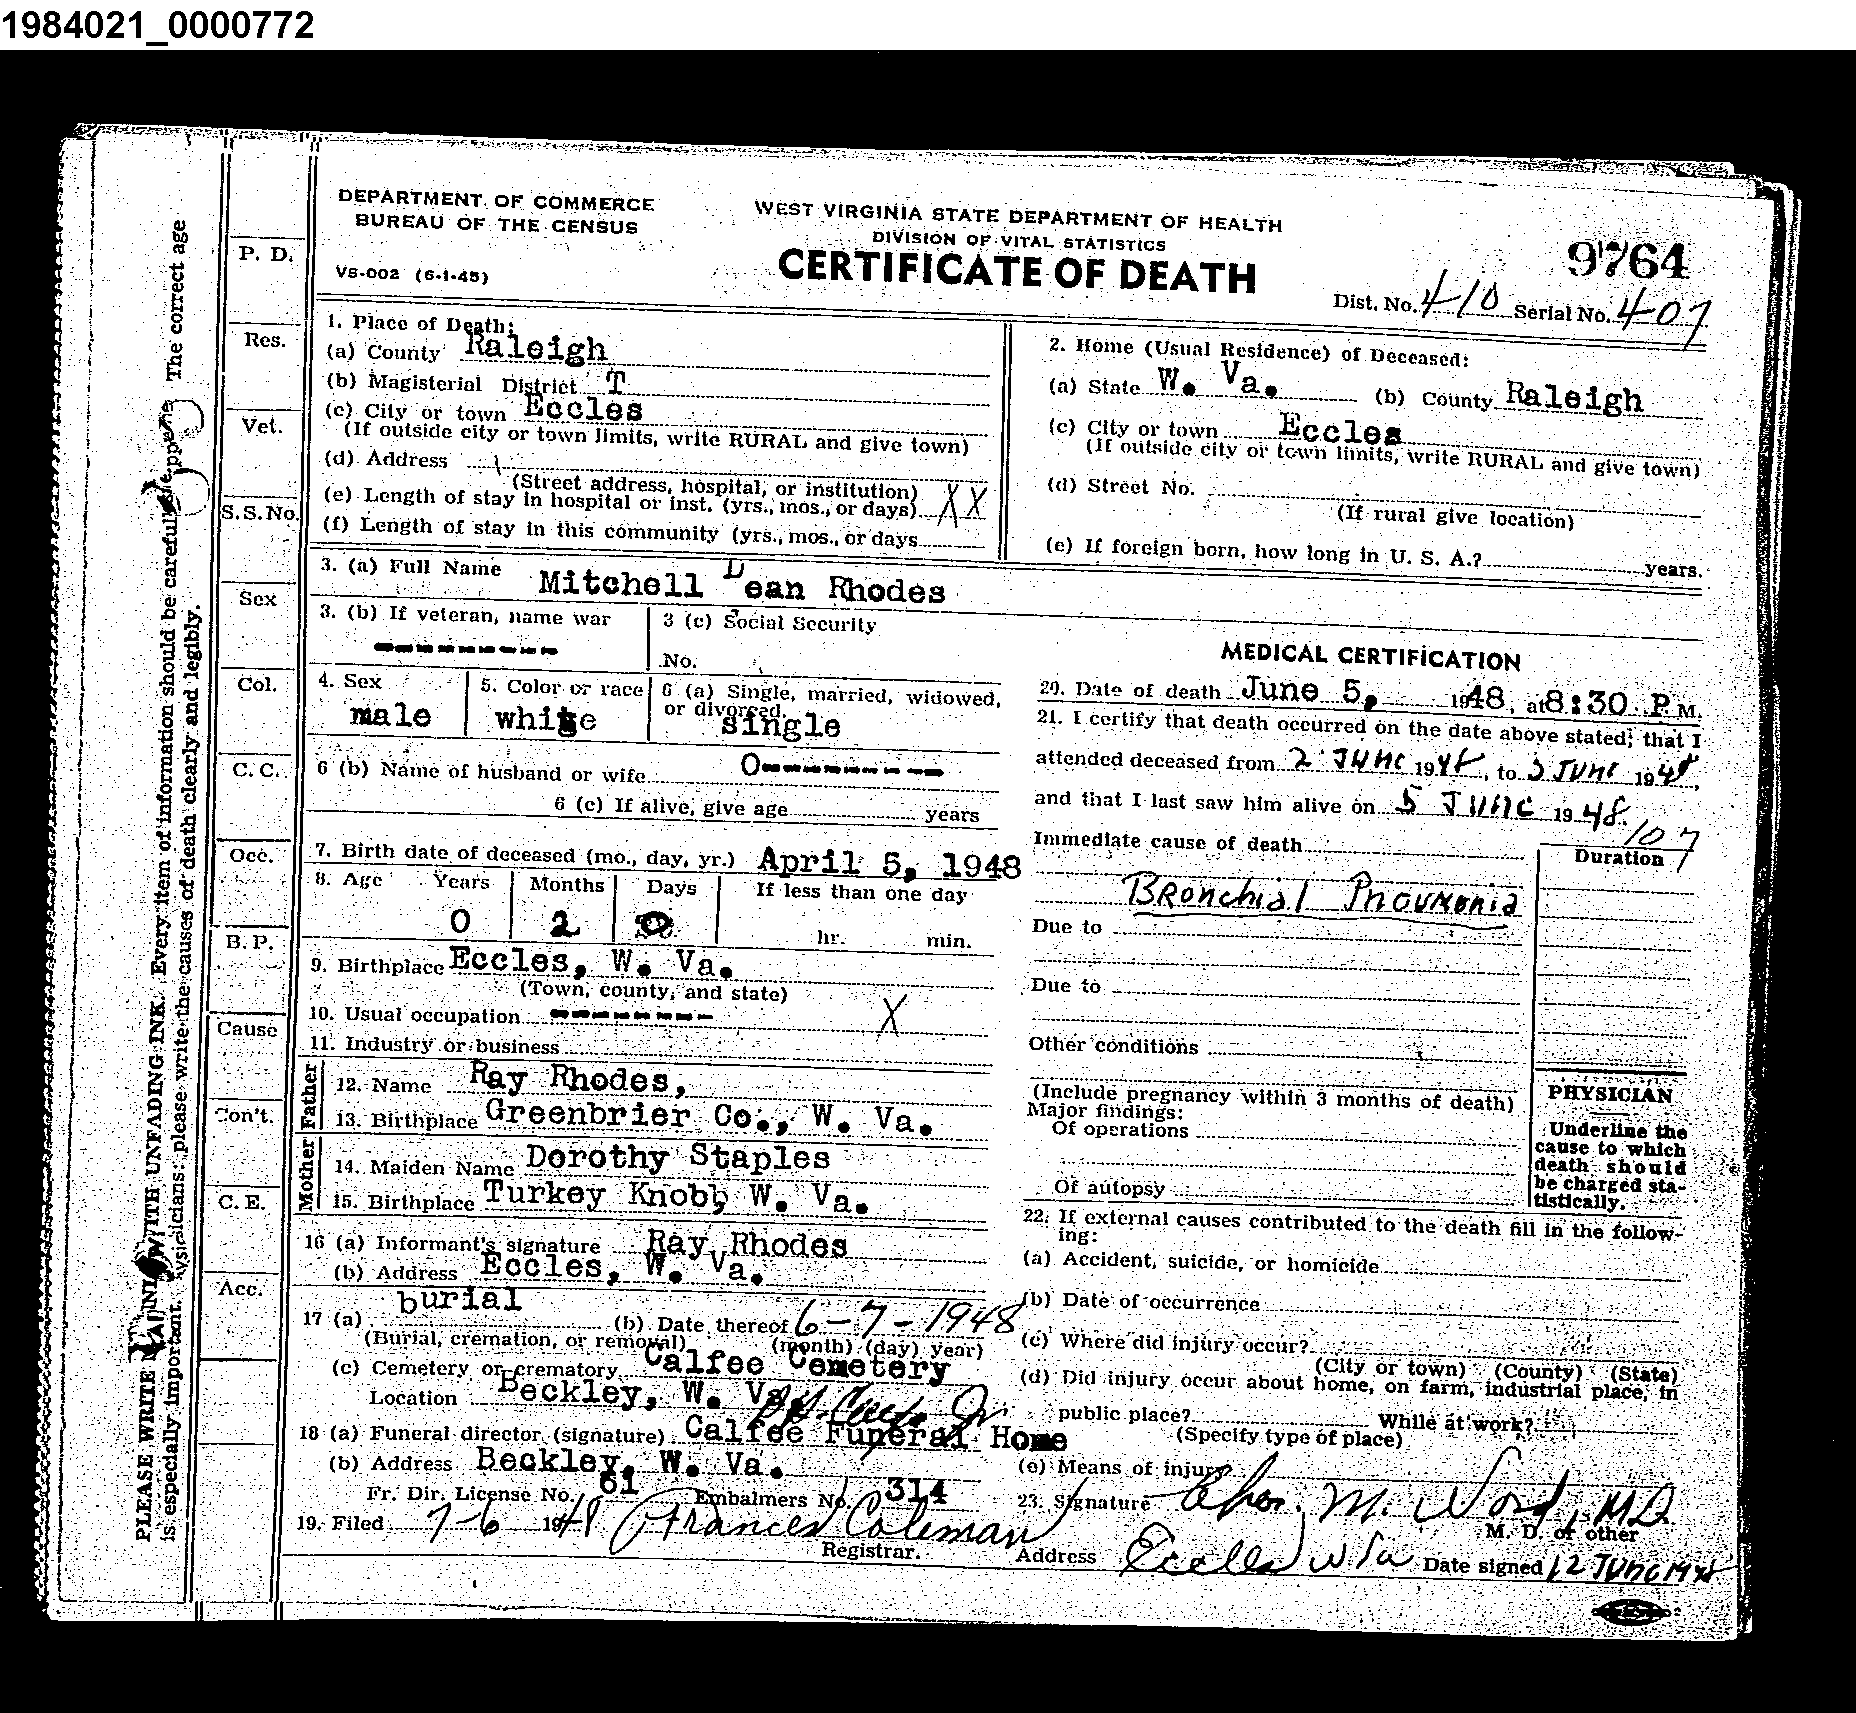 1984021_0000772
DEPARTMENT OF COMMERCE
BUREAU OF THE CENSUS
VS-002 (6-1-45)
WEST VIRGINIA STATE DEPARTMENT OF HEALTH
DIVISION OF VITAL STATISTICS
CERTIFICATE OF DEATH
9764
Dist. No. 410 Serial No. 407
P. D.
Res.
Vet.
S.S.No.
Sex
Col.
C. C.
Occ.
B. P.
Cause
Con't.
C. E.
Acc.
PLEASE WRITE WITH UNFADING INK. Every item of information should be The correct age
is especially important. please write the causes of death clearly and legibly.
1. Place of Death:
(a) County Raleigh
(b) Magisterial District T
(c) City or town Eccles
(If outside city or town limits, write RURAL and give town)
(d) Address
(Street address, hospital, or institution)
(e) Length of stay in hospital or inst. (yrs., mos., or days) XX
(f) Length of stay in this community (yrs., mos., or days
2. Home (Usual Residence) of Deceased:
(a) State W. Va. (b) County Raleigh
(c) City or town Eccles
(If outside city or town limits, write RURAL and give town)
(d) Street No.
(If rural give location)
(e) If foreign born, how long in U. S. A.? years.
3. (a) Full Name Mitchell Dean Rhodes
3. (b) If veteran, name war
---------
3 (c) Social Security
No.
4. Sex
male
5. Color or race
white
6 (a) Single, married, widowed,
or divorced
single
6 (b) Name of husband or wife 0---------
6 (c) If alive, give age years
7. Birth date of deceased (mo., day, yr.) April 5, 1948
8. Age Years Months Days If less than one day
0 2 0 hr. min.
9. Birthplace Eccles, W. Va.
(Town, county, and state)
10. Usual occupation -------- X
11. Industry or business
Father
12. Name Ray Rhodes,
13. Birthplace Greenbrier Co., W. Va.
Mother
14. Maiden Name Dorothy Staples
15. Birthplace Turkey Knob, W. Va.
16 (a) Informant's signature Ray Rhodes
(b) Address Eccles, W. Va.
17 (a) burial (b) Date thereof 6-7-1948
(Burial, cremation, or removal) (month) (day) year)
(c) Cemetery or crematory Calfee Cemetery
Location Beckley, W. Va.
18 (a) Funeral director (signature) Calfee Funeral Home
(b) Address Beckley, W. Va.
Fr. Dir. License No. 61 Embalmers No. 314
19. Filed 7-6 1948 Frances Coleman
Registrar.
MEDICAL CERTIFICATION
20. Date of death June 5, 1948, at 8:30 P.M.
21. I certify that death occurred on the date above stated; that I
attended deceased from 2 June 1948, to 5 June 1948,
and that I last saw him alive on 5 June 1948.
107
Immediate cause of death
Duration
Bronchial Pneumonia
Due to
Due to
Other conditions
(Include pregnancy within 3 months of death)
Major findings:
Of operations
Of autopsy
PHYSICIAN
Underline the
cause to which
death should
be charged sta-
tistically.
22. If external causes contributed to the death fill in the follow-
ing:
(a) Accident, suicide, or homicide
(b) Date of occurrence
(c) Where did injury occur?
(City or town) (County) (State)
(d) Did injury occur about home, on farm, industrial place, in
public place? While at work?
(Specify type of place)
(e) Means of injury
23. Signature Chas. M. Word, M.D.
M. D. or other
Address Eccles W Va Date signed 12 June 1948